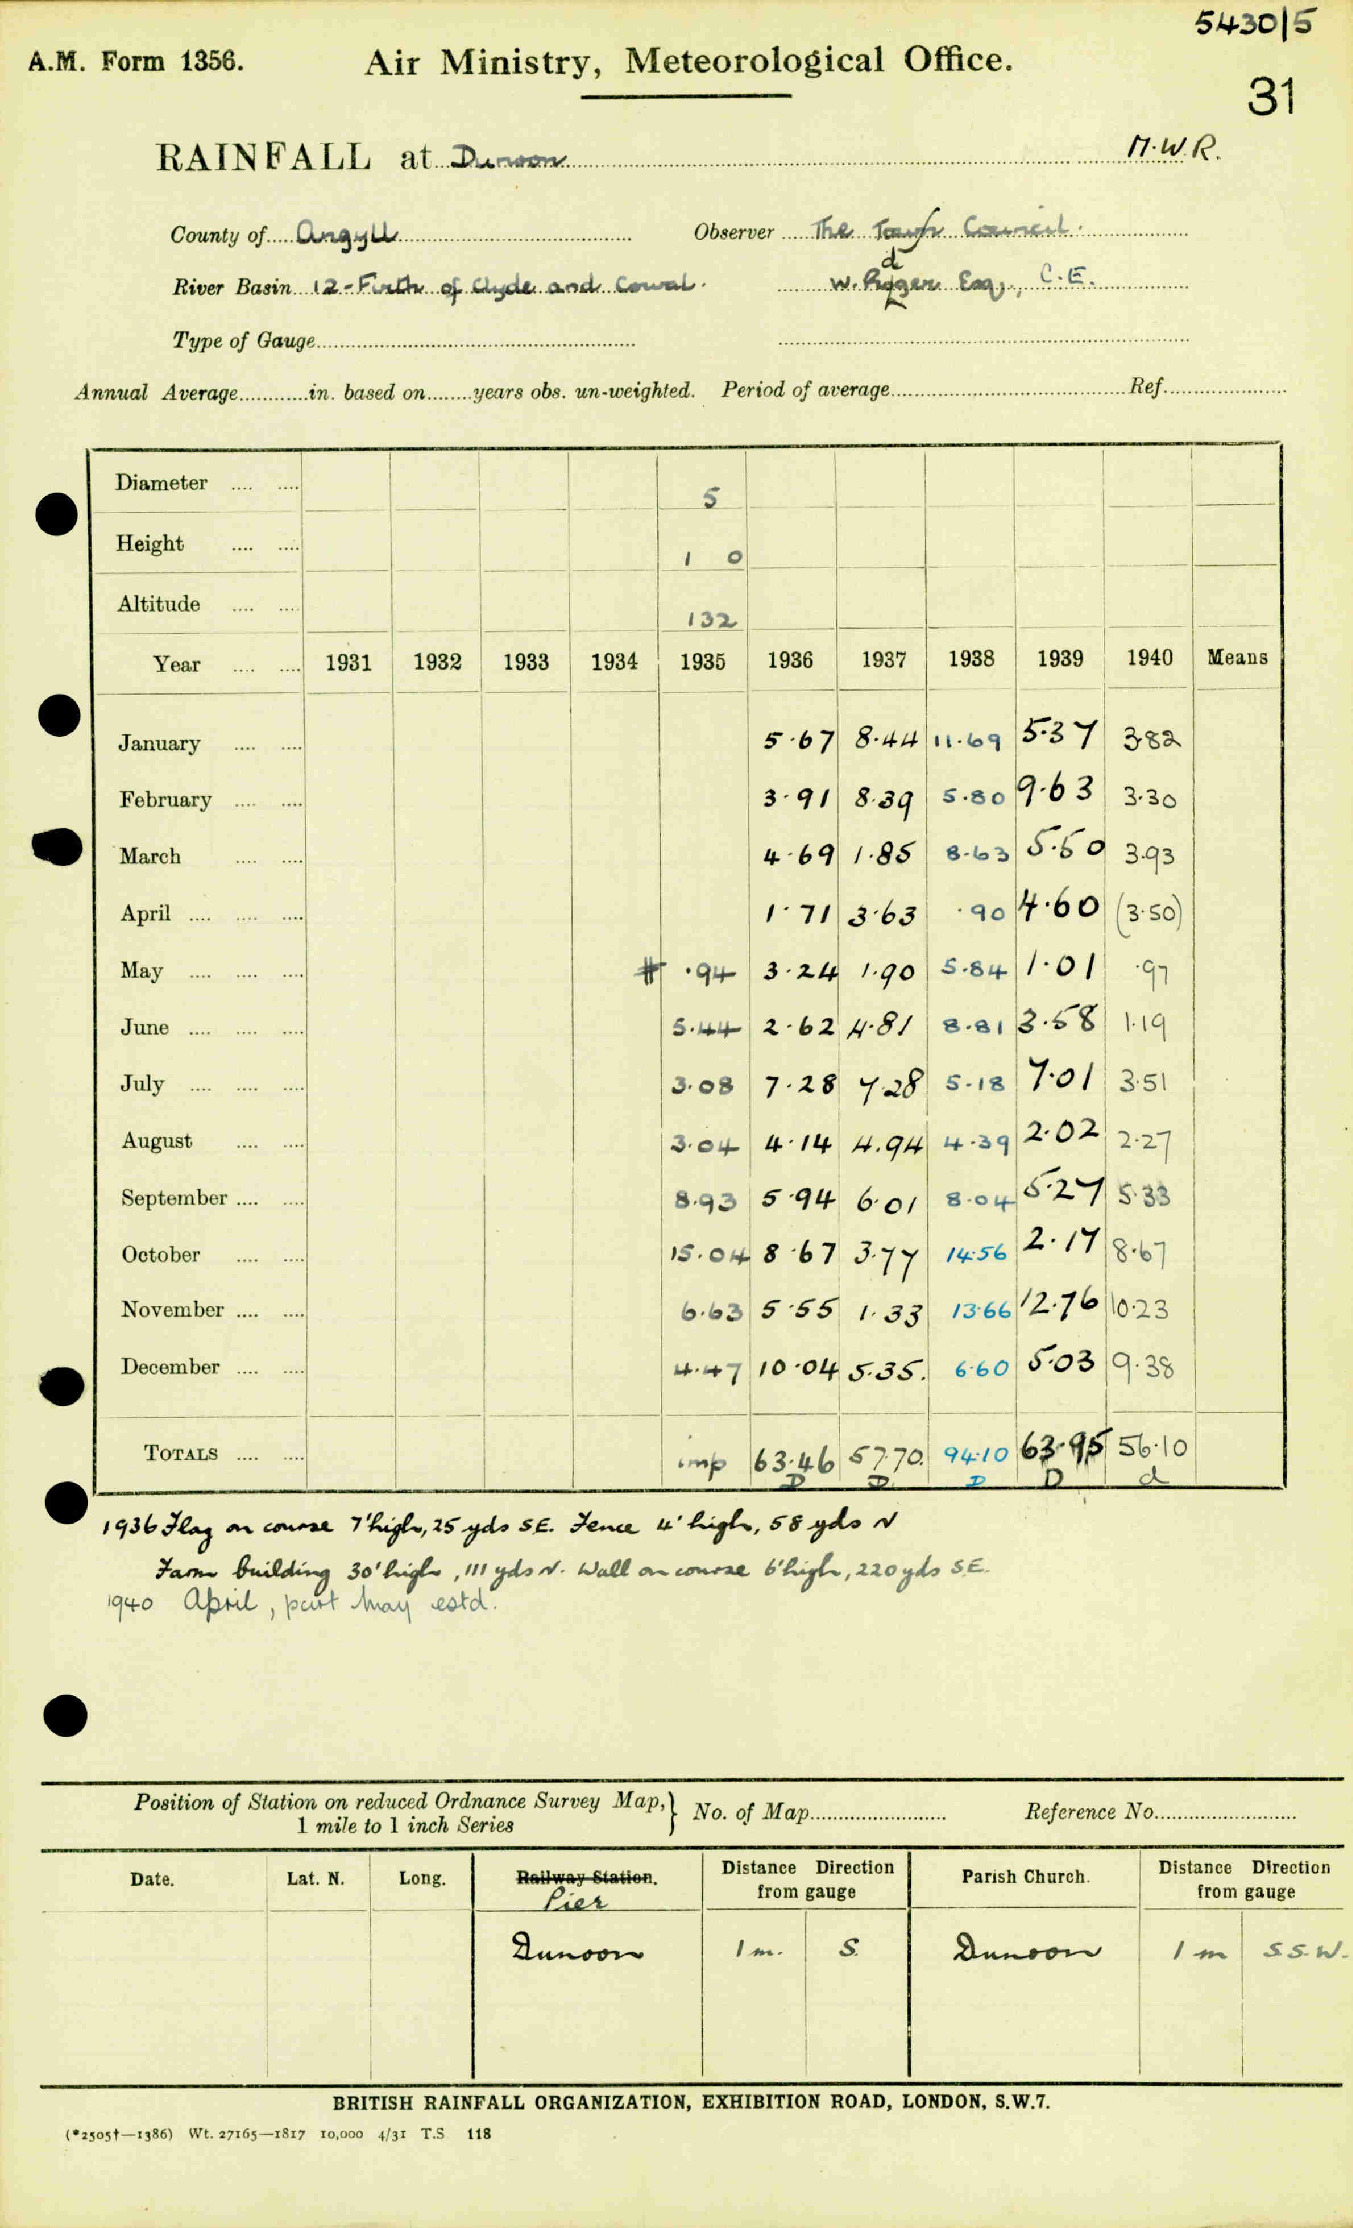 5430/5
A.M. Form 1356. Air Ministry, Meteorological Office.
31
RAINFALL at Dunoon M.W.R.
County of Argyll Observer The Town Council.
River Basin 12-Firth of Clyde and Cowal. W. Rodger Esq., C.E.
Type of Gauge
Annual Average in. based on years obs. un-weighted. Period of average Ref.
Diameter 5
Height 1 0
Altitude 132
Year 1931 1932 1933 1934 1935 1936 1937 1938 1939 1940 Means
January 5·67 8·44 11·69 5·37 3·82
February 3·91 8·39 5·80 9·63 3·30
March 4·69 1·85 8·63 5·50 3·93
April 1·71 3·63 ·90 4·60 (3·50)
May # ·94 3·24 1·90 5·84 1·01 ·97
June 5·44 2·62 4·81 8·81 3·58 1·19
July 3·08 7·28 7·28 5·18 7·01 3·51
August 3·04 4·14 4·94 4·39 2·02 2·27
September 8·93 5·94 6·01 8·04 5·27 5·33
October 15·04 8·67 3·77 14·56 2·17 8·67
November 6·63 5·55 1·33 13·66 12·76 10·23
December 4·47 10·04 5·35. 6·60 5·03 9·38
TOTALS imp 63·46 57·70. 94·10 63·95 56·10
D D D D d
1936 Flag on course 7' high, 25 yds SE. Fence 4' high, 58 yds N
Farm building 30' high, 111 yds N. Wall on course 6' high, 220 yds S.E.
1940 April, part May estd.
Position of Station on reduced Ordnance Survey Map, } No. of Map Reference No.
1 mile to 1 inch Series
Date. Lat. N. Long. Railway Station. Distance Direction from gauge Parish Church. Distance Direction from gauge
Pier
Dunoon 1 m. S. Dunoon 1 m S.S.W.
BRITISH RAINFALL ORGANIZATION, EXHIBITION ROAD, LONDON, S.W.7.
(*2505†—1386) Wt. 27165—1817 10,000 4/31 T.S 118